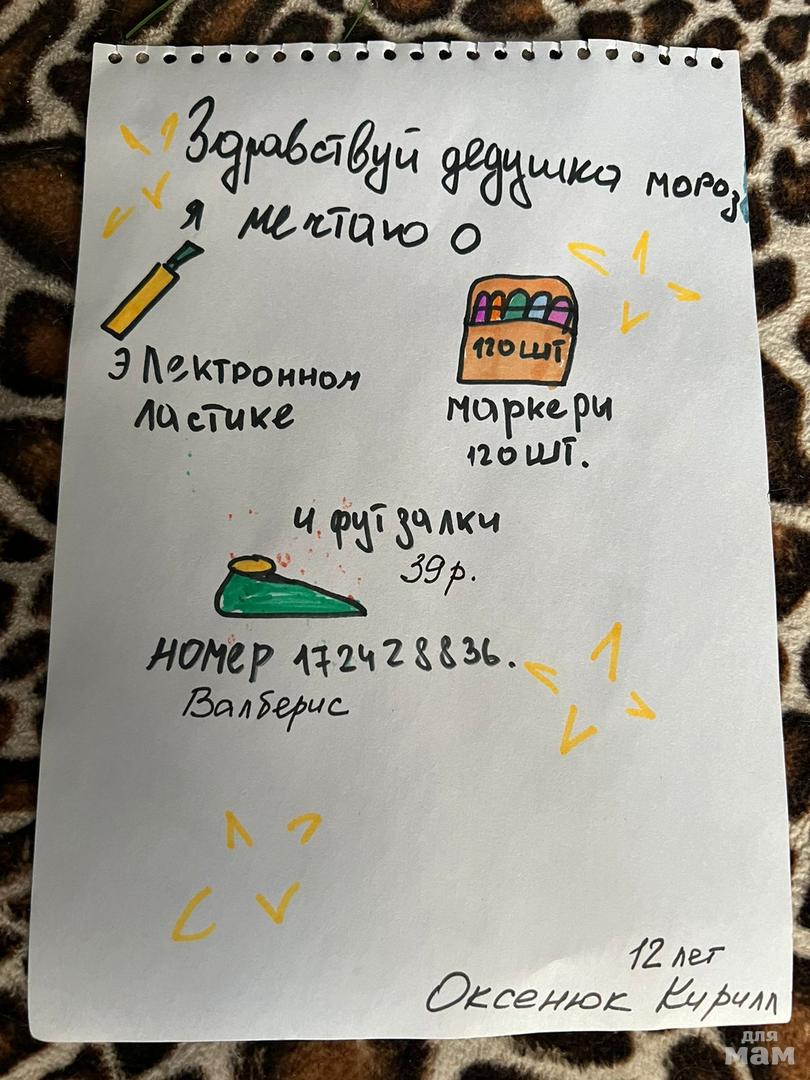 Здравствуй дедушка мороз
я мечтаю о
120шт
электронном
ластике
маркеры
120шт.
и футзалки
39р.
номер 172428836.
Валберис
12 лет
Оксенюк Кирилл
для
мам